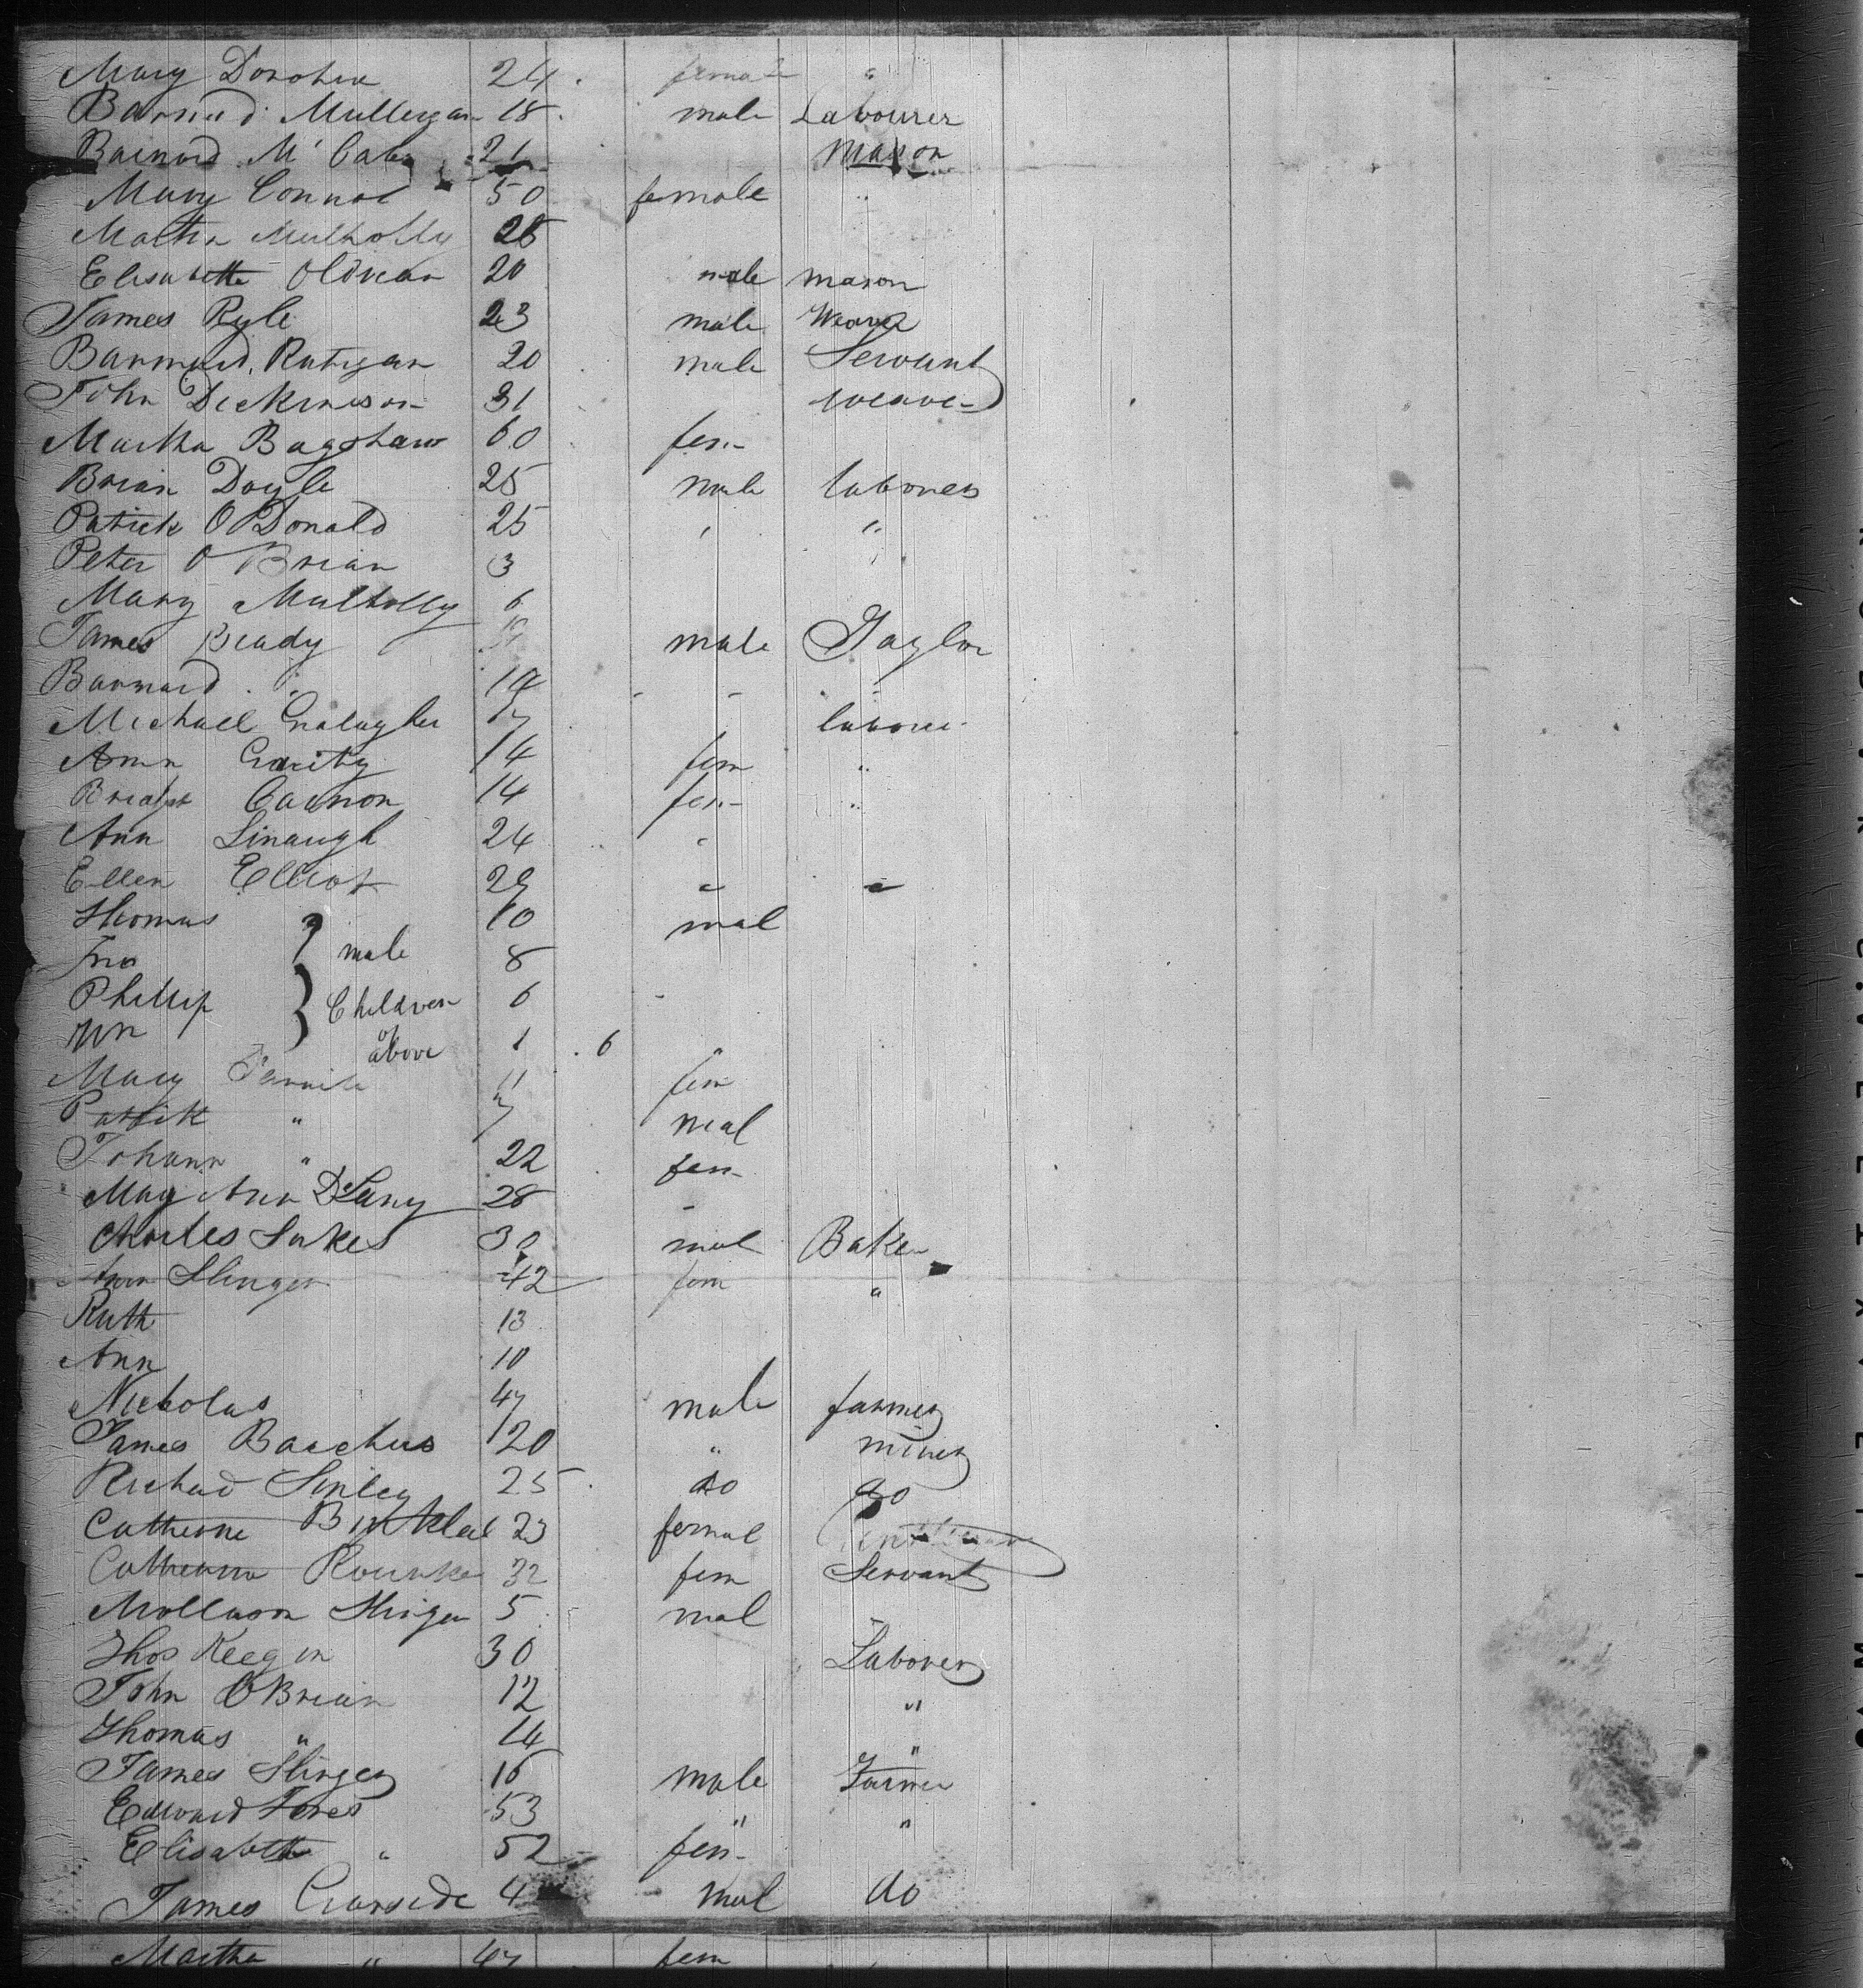 Mary Donohue 24 female "
Barnard Mullegan 18 male Labourer
Barnard McCabe 21 Mason
Mary Connor 50 female "
Martha Mulholly 28
Elisabeth Oldman 20 male mason
James Ryle 23 male Weaver
Barnard Ratigan 20 male Servant
John Dickinson 31 weaver
Martha Bagshaw 60 fem
Brian Doyle 25 male laborer
Patrick O Donald 25 " "
Peter O Brian 3 "
Mary Mulholly 6
James Brady male Taylor
Barnard " 19 " "
Michael Galagher 17 laborer
Ann Garity 14 fem "
Bridget Cannon 14 fem "
Ann Linaugh 24 "
Ellen Elliot 29 " "
Thomas 10 mal
Jno } male 8
Phillip } Children 6 "
Wm of above 1 . 6 "
Mary 11 fem
Patrick " 7 meal
Johann " 22 fem
May Ann DeLany 28 "
Charles Sukes 30 mal Baker
Ann Slinger 42 fem "
Ruth 13
Ann 10
Nicholas 47 male farmer
James Bacchus 20 " miner
Richard 25 do do
Catherine 23 femal
Catherine Rourke 32 fem Servant
Mollason Slinger 5 mal
Thos Keegan 30 Laborer
John O'Brian 12 "
Thomas " 14 "
James Slinger 16 male Farmer
Edward Jones 53 " "
Elisabeth " 52 fem
James Garside 4 mal do
Martha " 47 fem